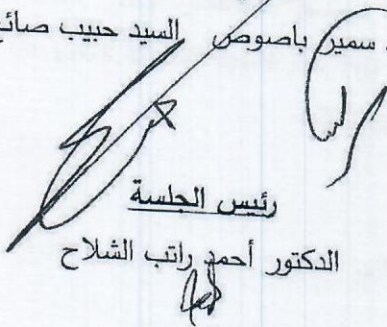 سمير باصوص السيد حبيب صائغ
رئيس الجلسة
الدكتور أحمد راتب الشلاح